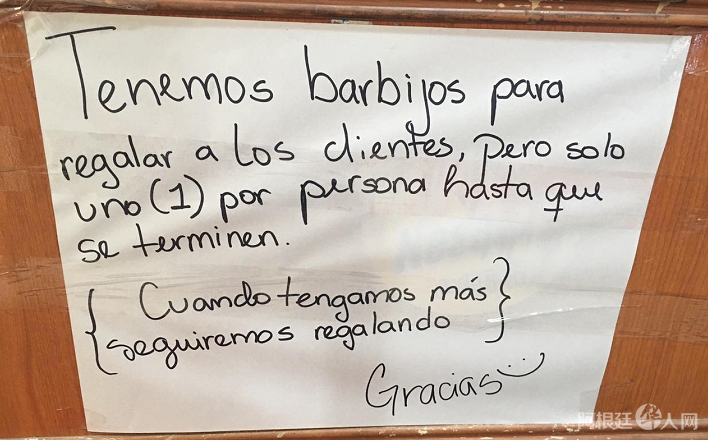 Tenemos barbijos para
regalar a los clientes, pero solo
uno (1) por persona hasta que
se terminen.
{ Cuando tengamos más }
seguiremos regalando
Gracias :)
阿根廷华人网